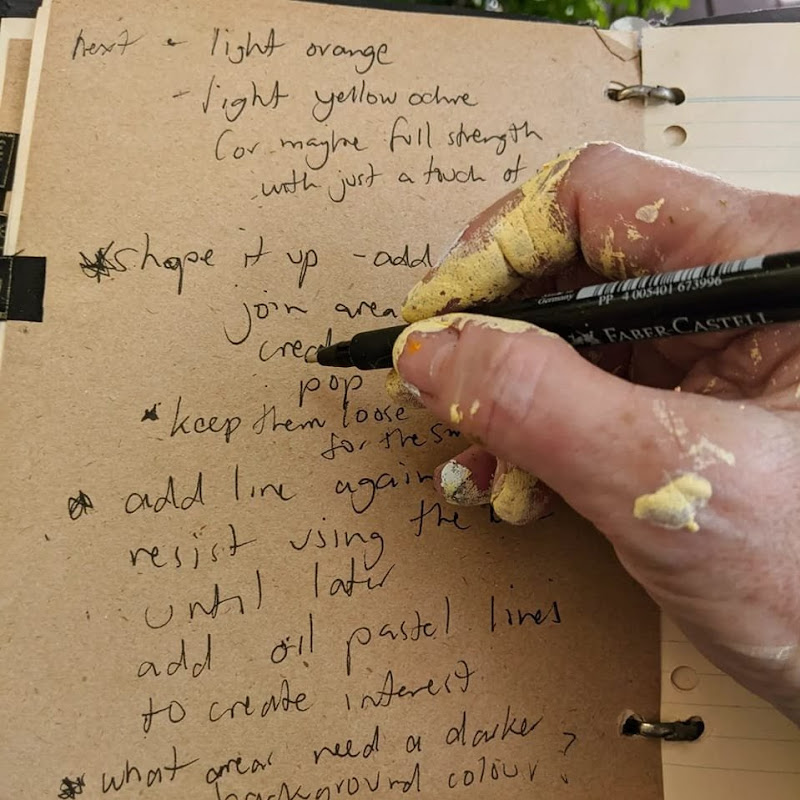 next - light orange
- light yellow ochre
(or maybe full strength
with just a touch of
shape it up - add
join area
crea
pop
keep them loose
for the sm
add line again
resist using the b
until later
add oil pastel lines
to create interest
what areas need a darker
background colour?
Germany
PP 4 005401 673996
FABER-CASTELL